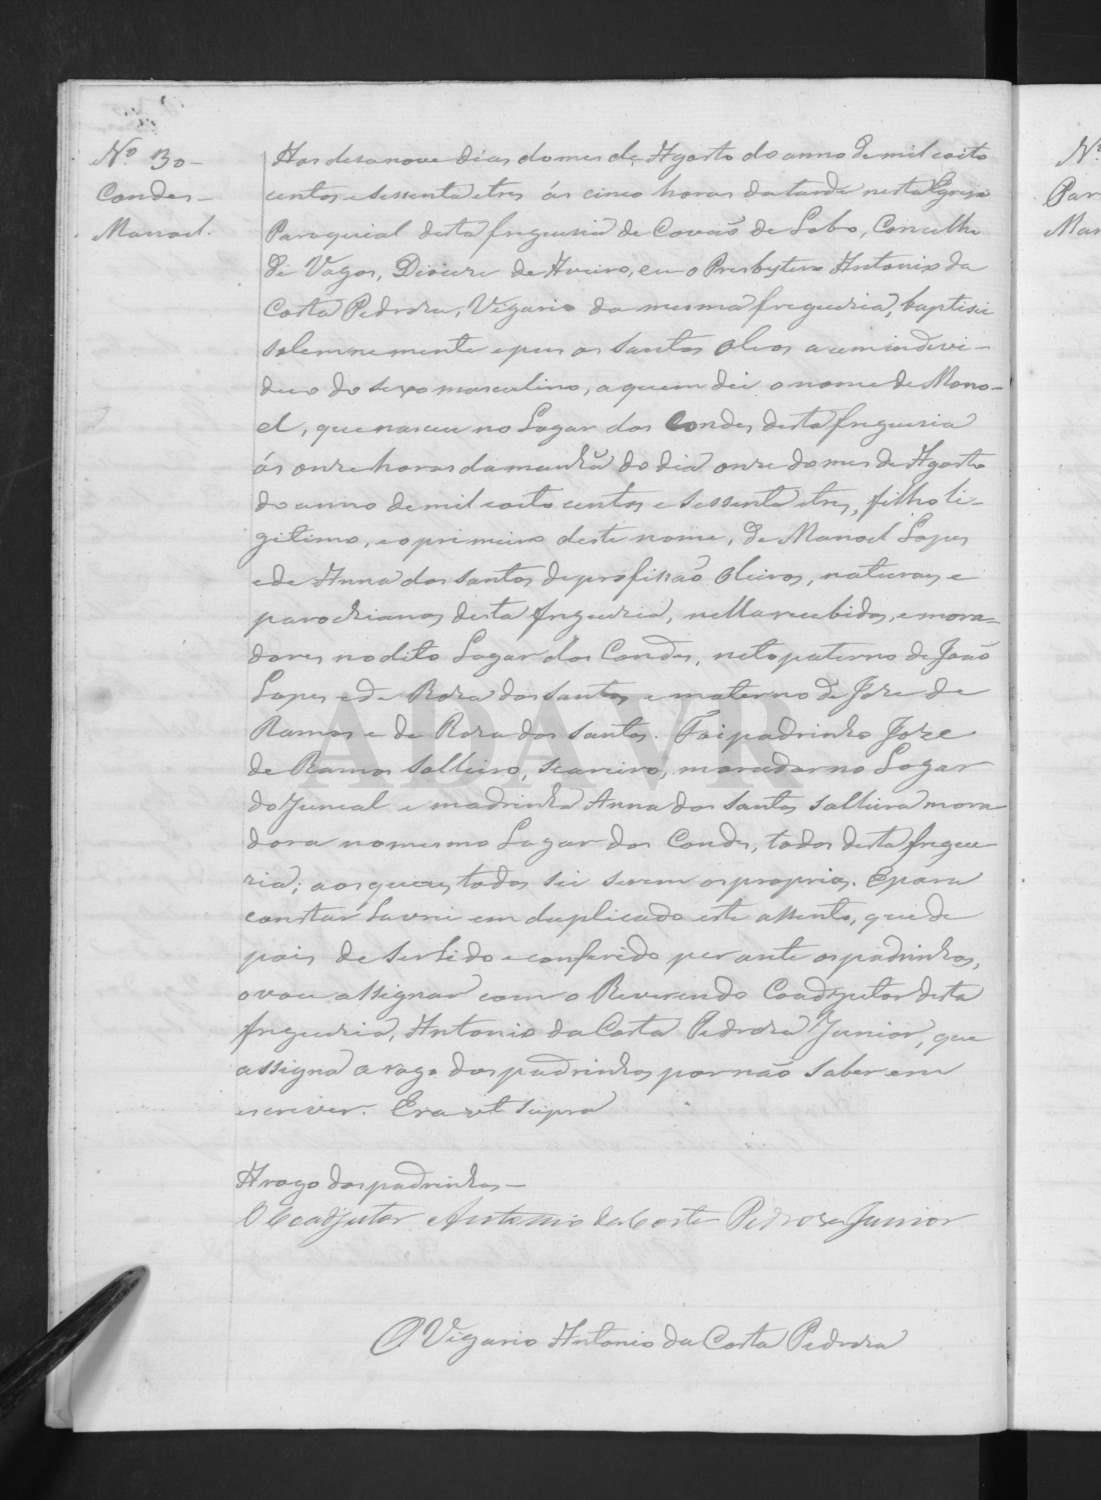 Nº 30-
Condes-
Manoel.
Aos desanove dias do mes de Agosto do anno de mil oito
centos e sessenta e tres ás cinco horas da tarde nesta Egreja
Paroquial desta freguesia de Covaõ de Lobo, Concelho
de Vagos, Diocese de Aveiro, eu o Presbytero Antonio da
Costa Pedroza, Vigario da mesma freguezia, baptisei
solemnemente e pus os Santos Oleos a um indevi-
duo do sexo masculino, a quem dei o nome de Mano-
el, que nasceu no Lugar dos Condes desta freguesia
ás onze horas da manhã do dia onze do mes de Agosto
do anno de mil oito centos e sessenta e tres, filho li-
gitimo, e o primeiro deste nome, de Manoel Lopes
e de Anna dos Santos de profissaõ Oleiros, naturaes e
parochianos desta freguezia, nella recebidos, e mora-
dores no dito Lugar dos Condes, neto paterno de Joaõ
Lopes e de Roza dos Santos e materno de Joze de
Ramos e de Roza dos Santos. Foi padrinho Joze
de Ramos solteiro, seareiro, morador no Lugar
do Juncal e madrinha Anna dos Santos solteira mora
dora no mesmo Lugar dos Condes, todos desta fregue
zia; aos quaes todos sei serem os proprios. E para
constar lavrei em duplicado este assento, que de
pois de ser lido e conferido perante os padrinhos,
o vou assignar com o Reverendo Coadjutor desta
freguezia, Antonio da Costa Pedroza Junior, que
assigna a rogo dos padrinhos por naõ saberem
escrever. Era ut supra
A rogo dos padrinhos-
O Coadjutor Antonio da Costa Pedroza Junior
O Vigario Antonio da Costa Pedroza
Nº
Par
Man
ADAVR